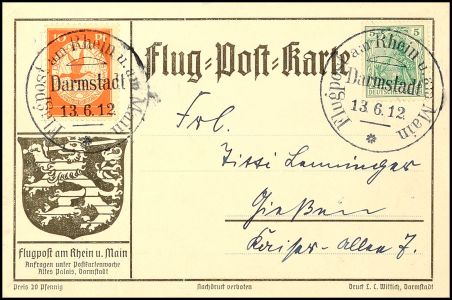 Flug-Post-Karte
Flugpost am Rhein u. am Main
Darmstadt
13.6.12.
Pf
Flugpost am Rhein u. am Main
Darmstadt
13.6.12.
5
Frl.
Gießen
Kaiser-Allee 7.
Flugpost am Rhein u. Main
Anfragen unter Postkartenwoche
Altes Palais, Darmstadt
Preis 20 Pfennig
Nachdruck verboten
Druck L. C. Wittich, Darmstadt